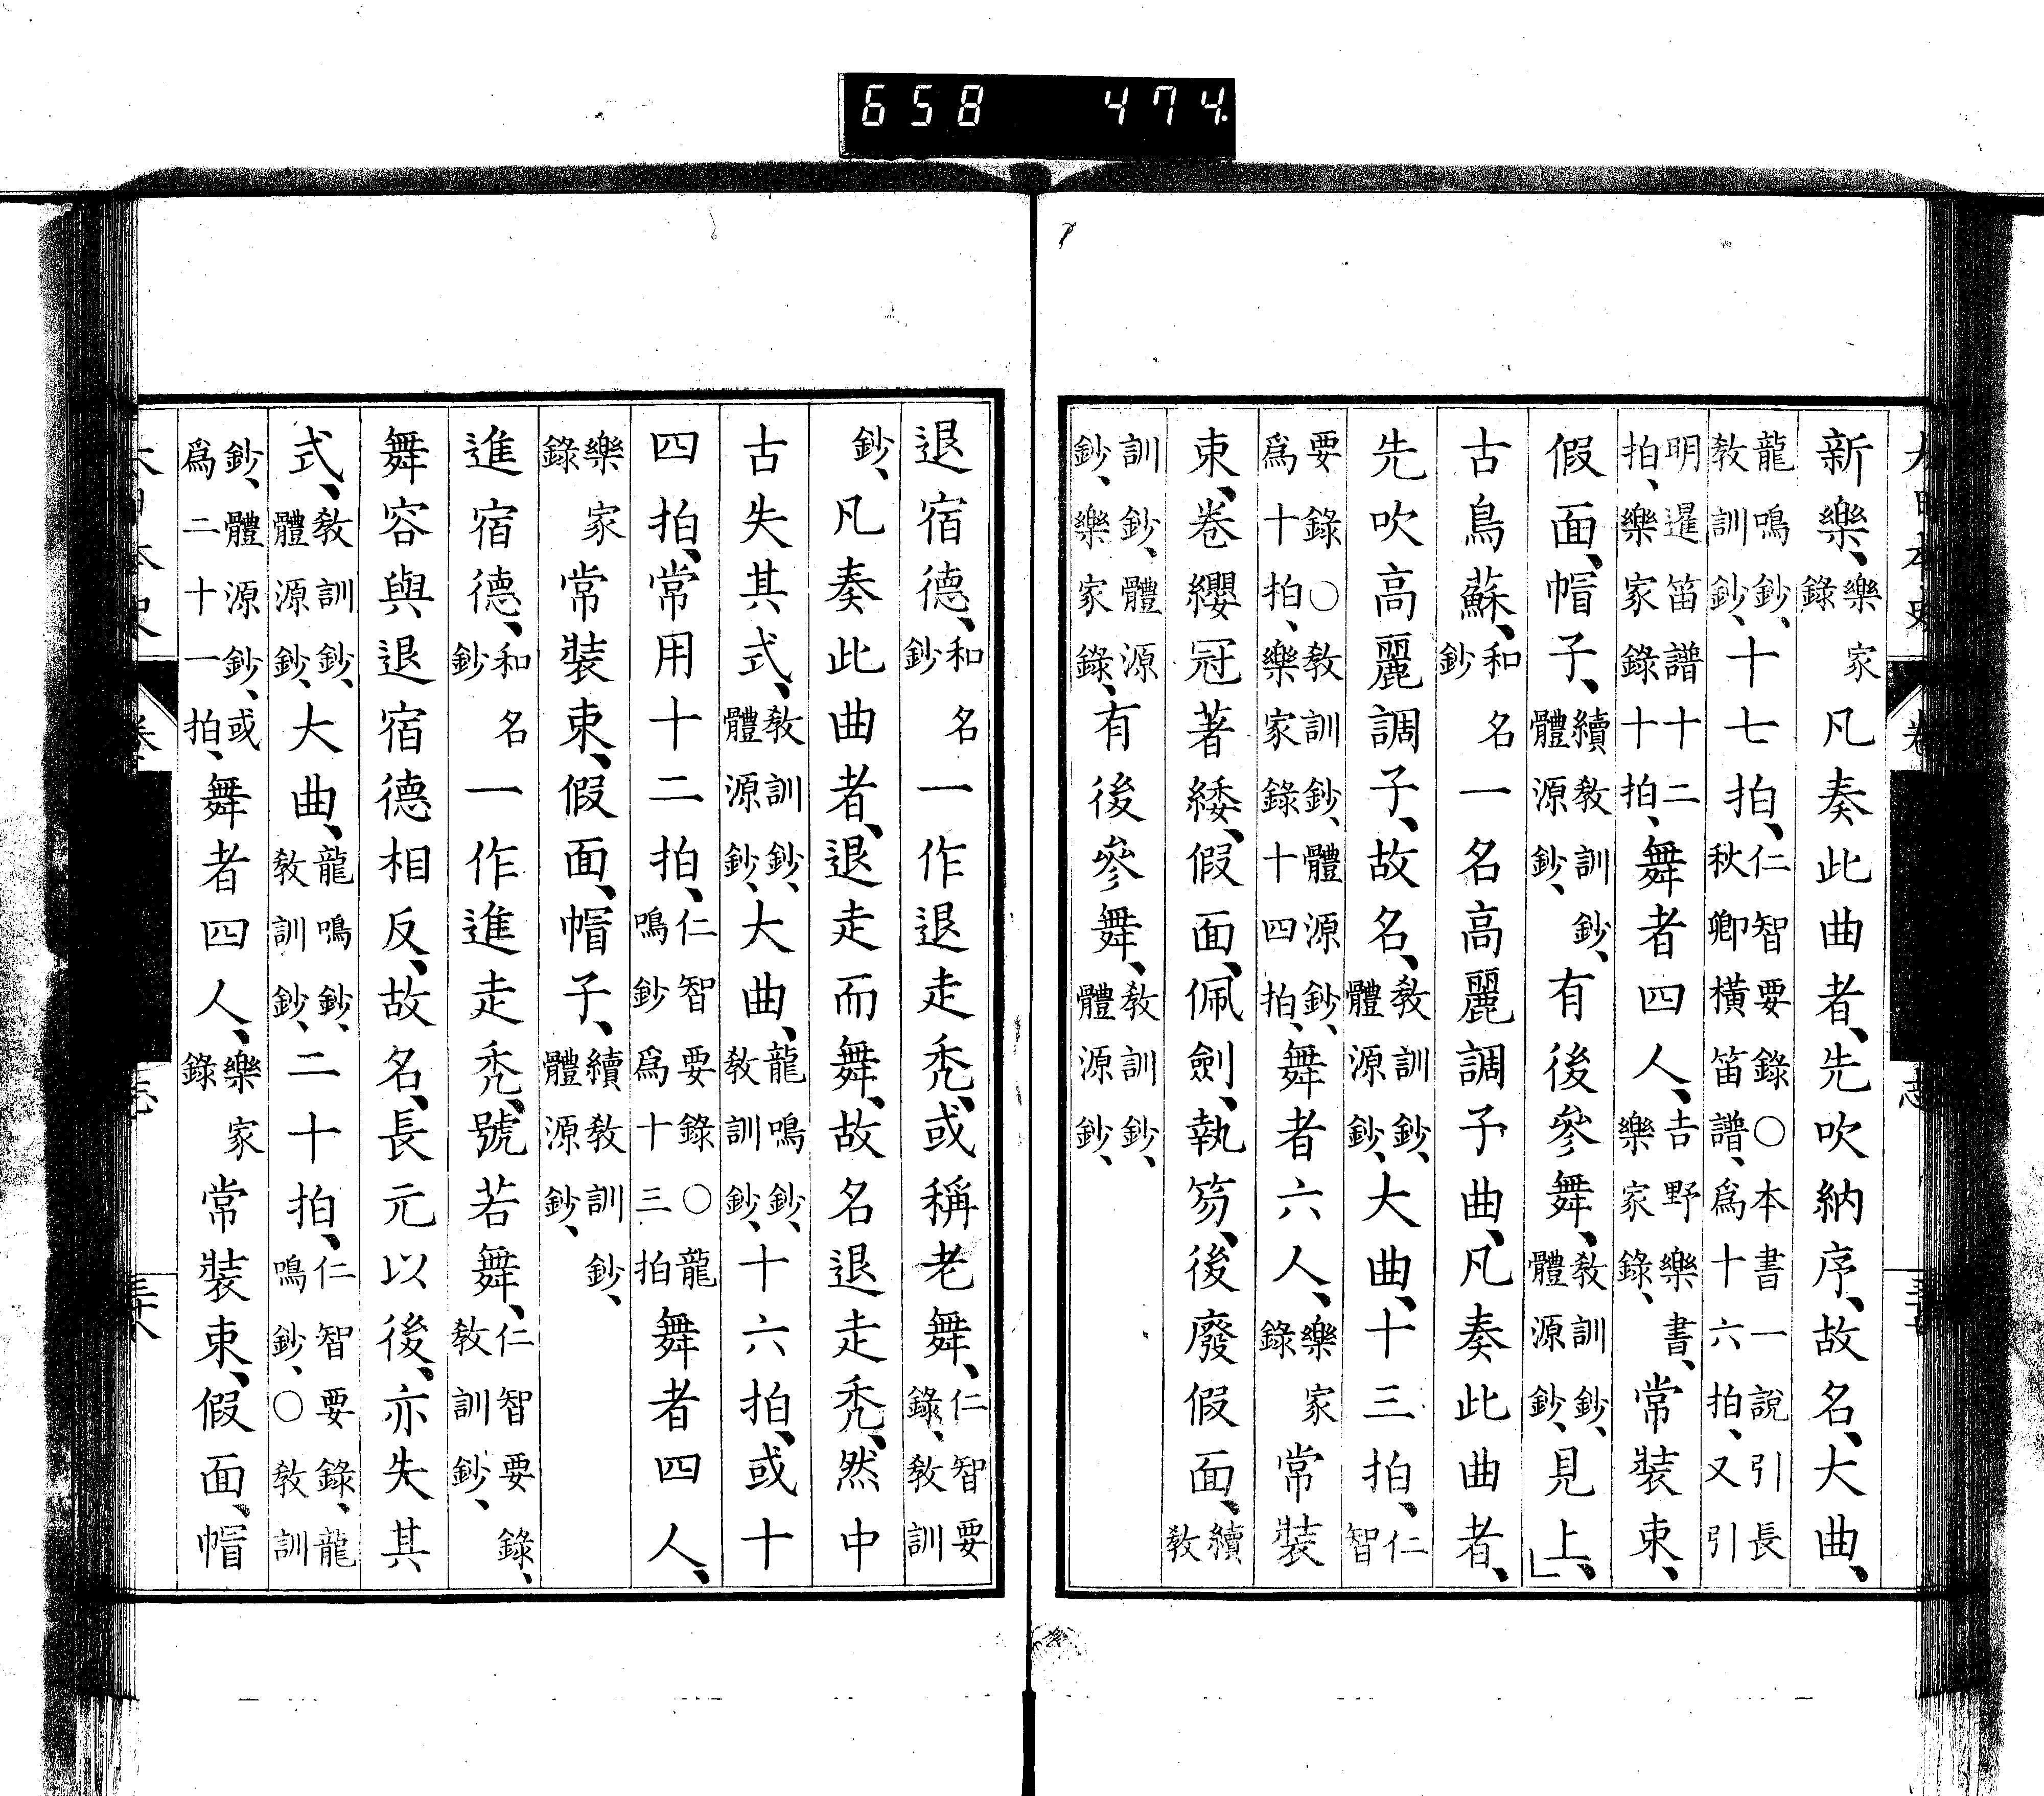 658 474
大日本史
新樂、樂家錄凡奏此曲者、先吹納序、故名、大曲、
龍鳴鈔、教訓鈔、十七拍、仁智要錄○本書一說引長秋卿橫笛譜、爲十六拍、又引
明暹笛譜十二拍、樂家錄十拍、舞者四人、吉野樂書、樂家錄、常裝束、
假面、帽子、續教訓鈔、體源鈔、有後參舞、教訓鈔、體源鈔、見上、」
古鳥蘇、和名鈔一名高麗調子曲、凡奏此曲者、
先吹高麗調子、故名、教訓鈔、體源鈔、大曲、十三拍、仁智
要錄○教訓鈔、體源鈔、爲十拍、樂家錄十四拍、舞者六人、樂家錄常裝
束、卷纓冠著緌、假面、佩劍、執笏、後廢假面、續教
訓鈔、體源鈔、樂家錄、有後參舞、教訓鈔、體源鈔、
退宿德、和名鈔一作退走禿、或稱老舞、仁智要錄、教訓
鈔、凡奏此曲者、退走而舞、故名退走禿、然中
古失其式、教訓鈔、體源鈔、大曲、龍鳴鈔、教訓鈔、十六拍、或十
四拍、常用十二拍、仁智要錄○龍鳴鈔爲十三拍舞者四人、
樂家錄常裝束、假面、帽子、續教訓鈔、體源鈔、
進宿德、和名鈔一作進走禿、號若舞、仁智要錄、教訓鈔、
舞容與退宿德相反、故名、長元以後、亦失其
式、教訓鈔、體源鈔、大曲、龍鳴鈔、教訓鈔、二十拍、仁智要錄、龍鳴鈔、○教訓
鈔、體源鈔、或爲二十一拍、舞者四人、樂家錄常裝束、假面、帽